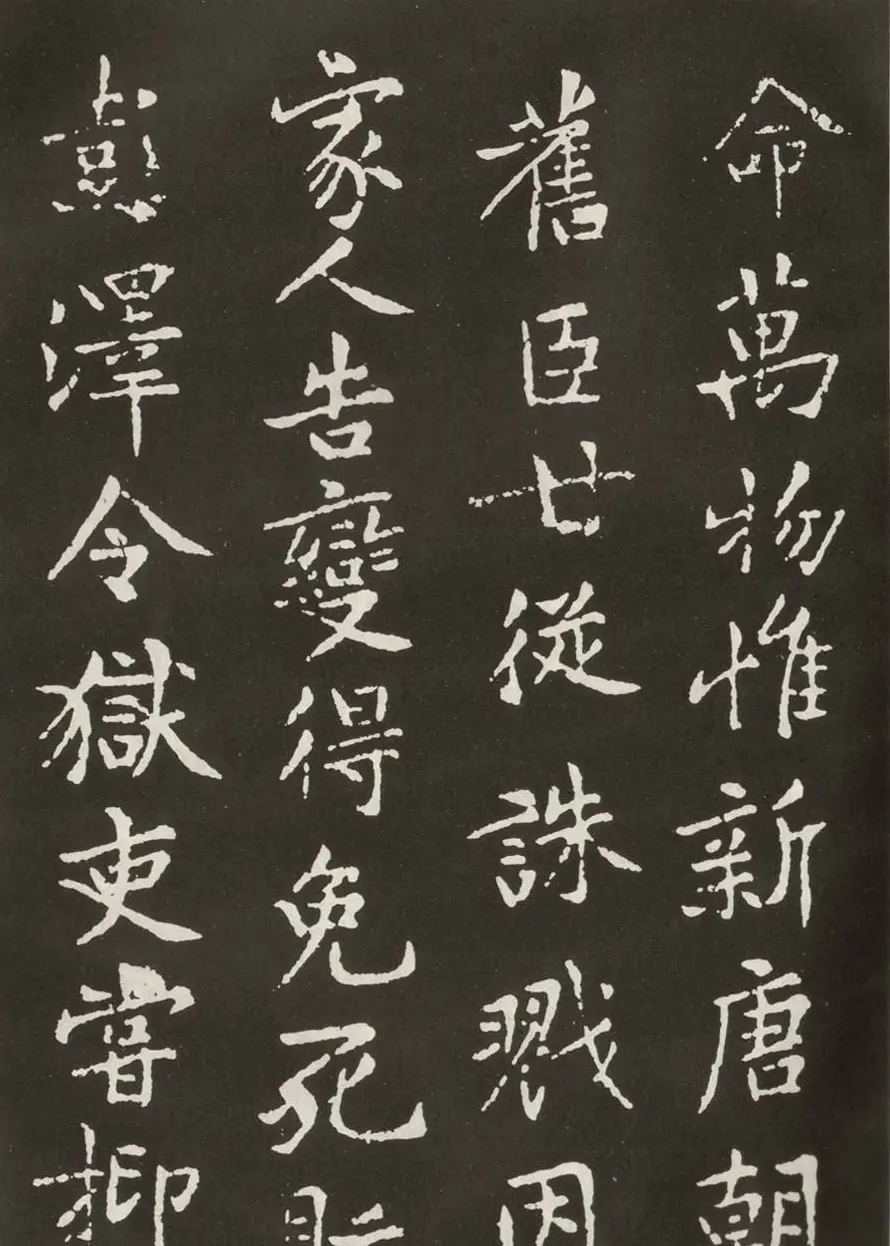 命萬物惟新唐朝
舊臣甘從誅戮因
家人告變得免死
彭澤令獄吏嘗抑